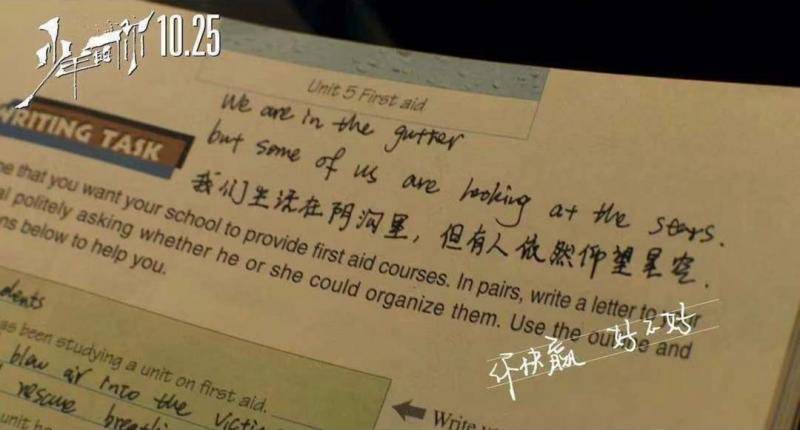 少年的你 10.25
Unit 5 First aid
We are in the gutter
but some of us are looking at the stars.
我们生活在阴沟里，但有人依然仰望星空.
WRITING TASK
ne that you want your school to provide first aid courses. In pairs, write a letter to your
al politely asking whether he or she could organize them. Use the outline and
ns below to help you.
你快赢 好不好
dents
as been studying a unit on first aid.
blow air into the victi
rescue breathin
unit
Write